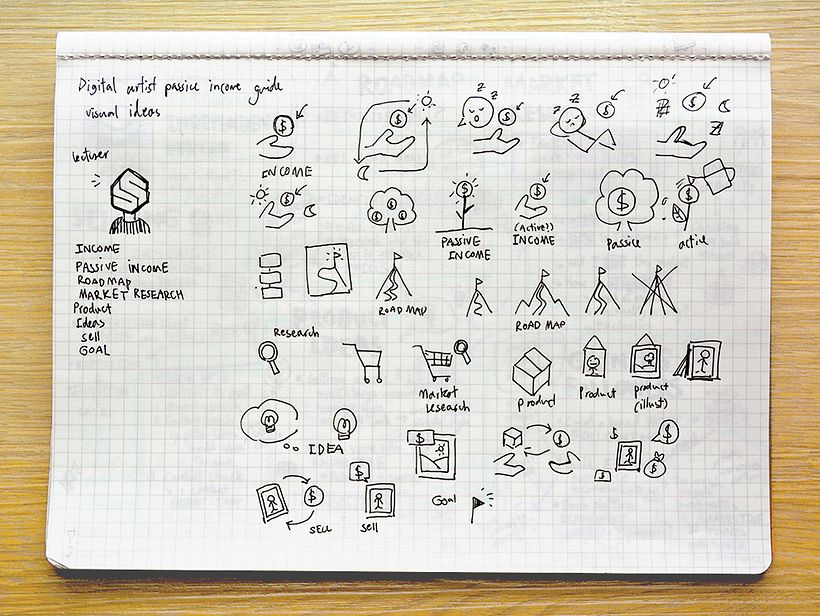 Digital artist passice income guide
visual ideas
lecturer
INCOME
PASSIVE INCOME
ROADMAP
MARKET RESEARCH
Product
Ideas
sell
GOAL
z z
$ $ $ $ $
z z
z
INCOME
$ $ $ $ $ $ $ $
PASSIVE
INCOME
(Active?)
INCOME
Passice
active
ROAD MAP
ROAD MAP
Research
Market
research
product
Product
product
(illust)
IDEA
$ $ $ $
$ $ $
SELL
sell
Goal